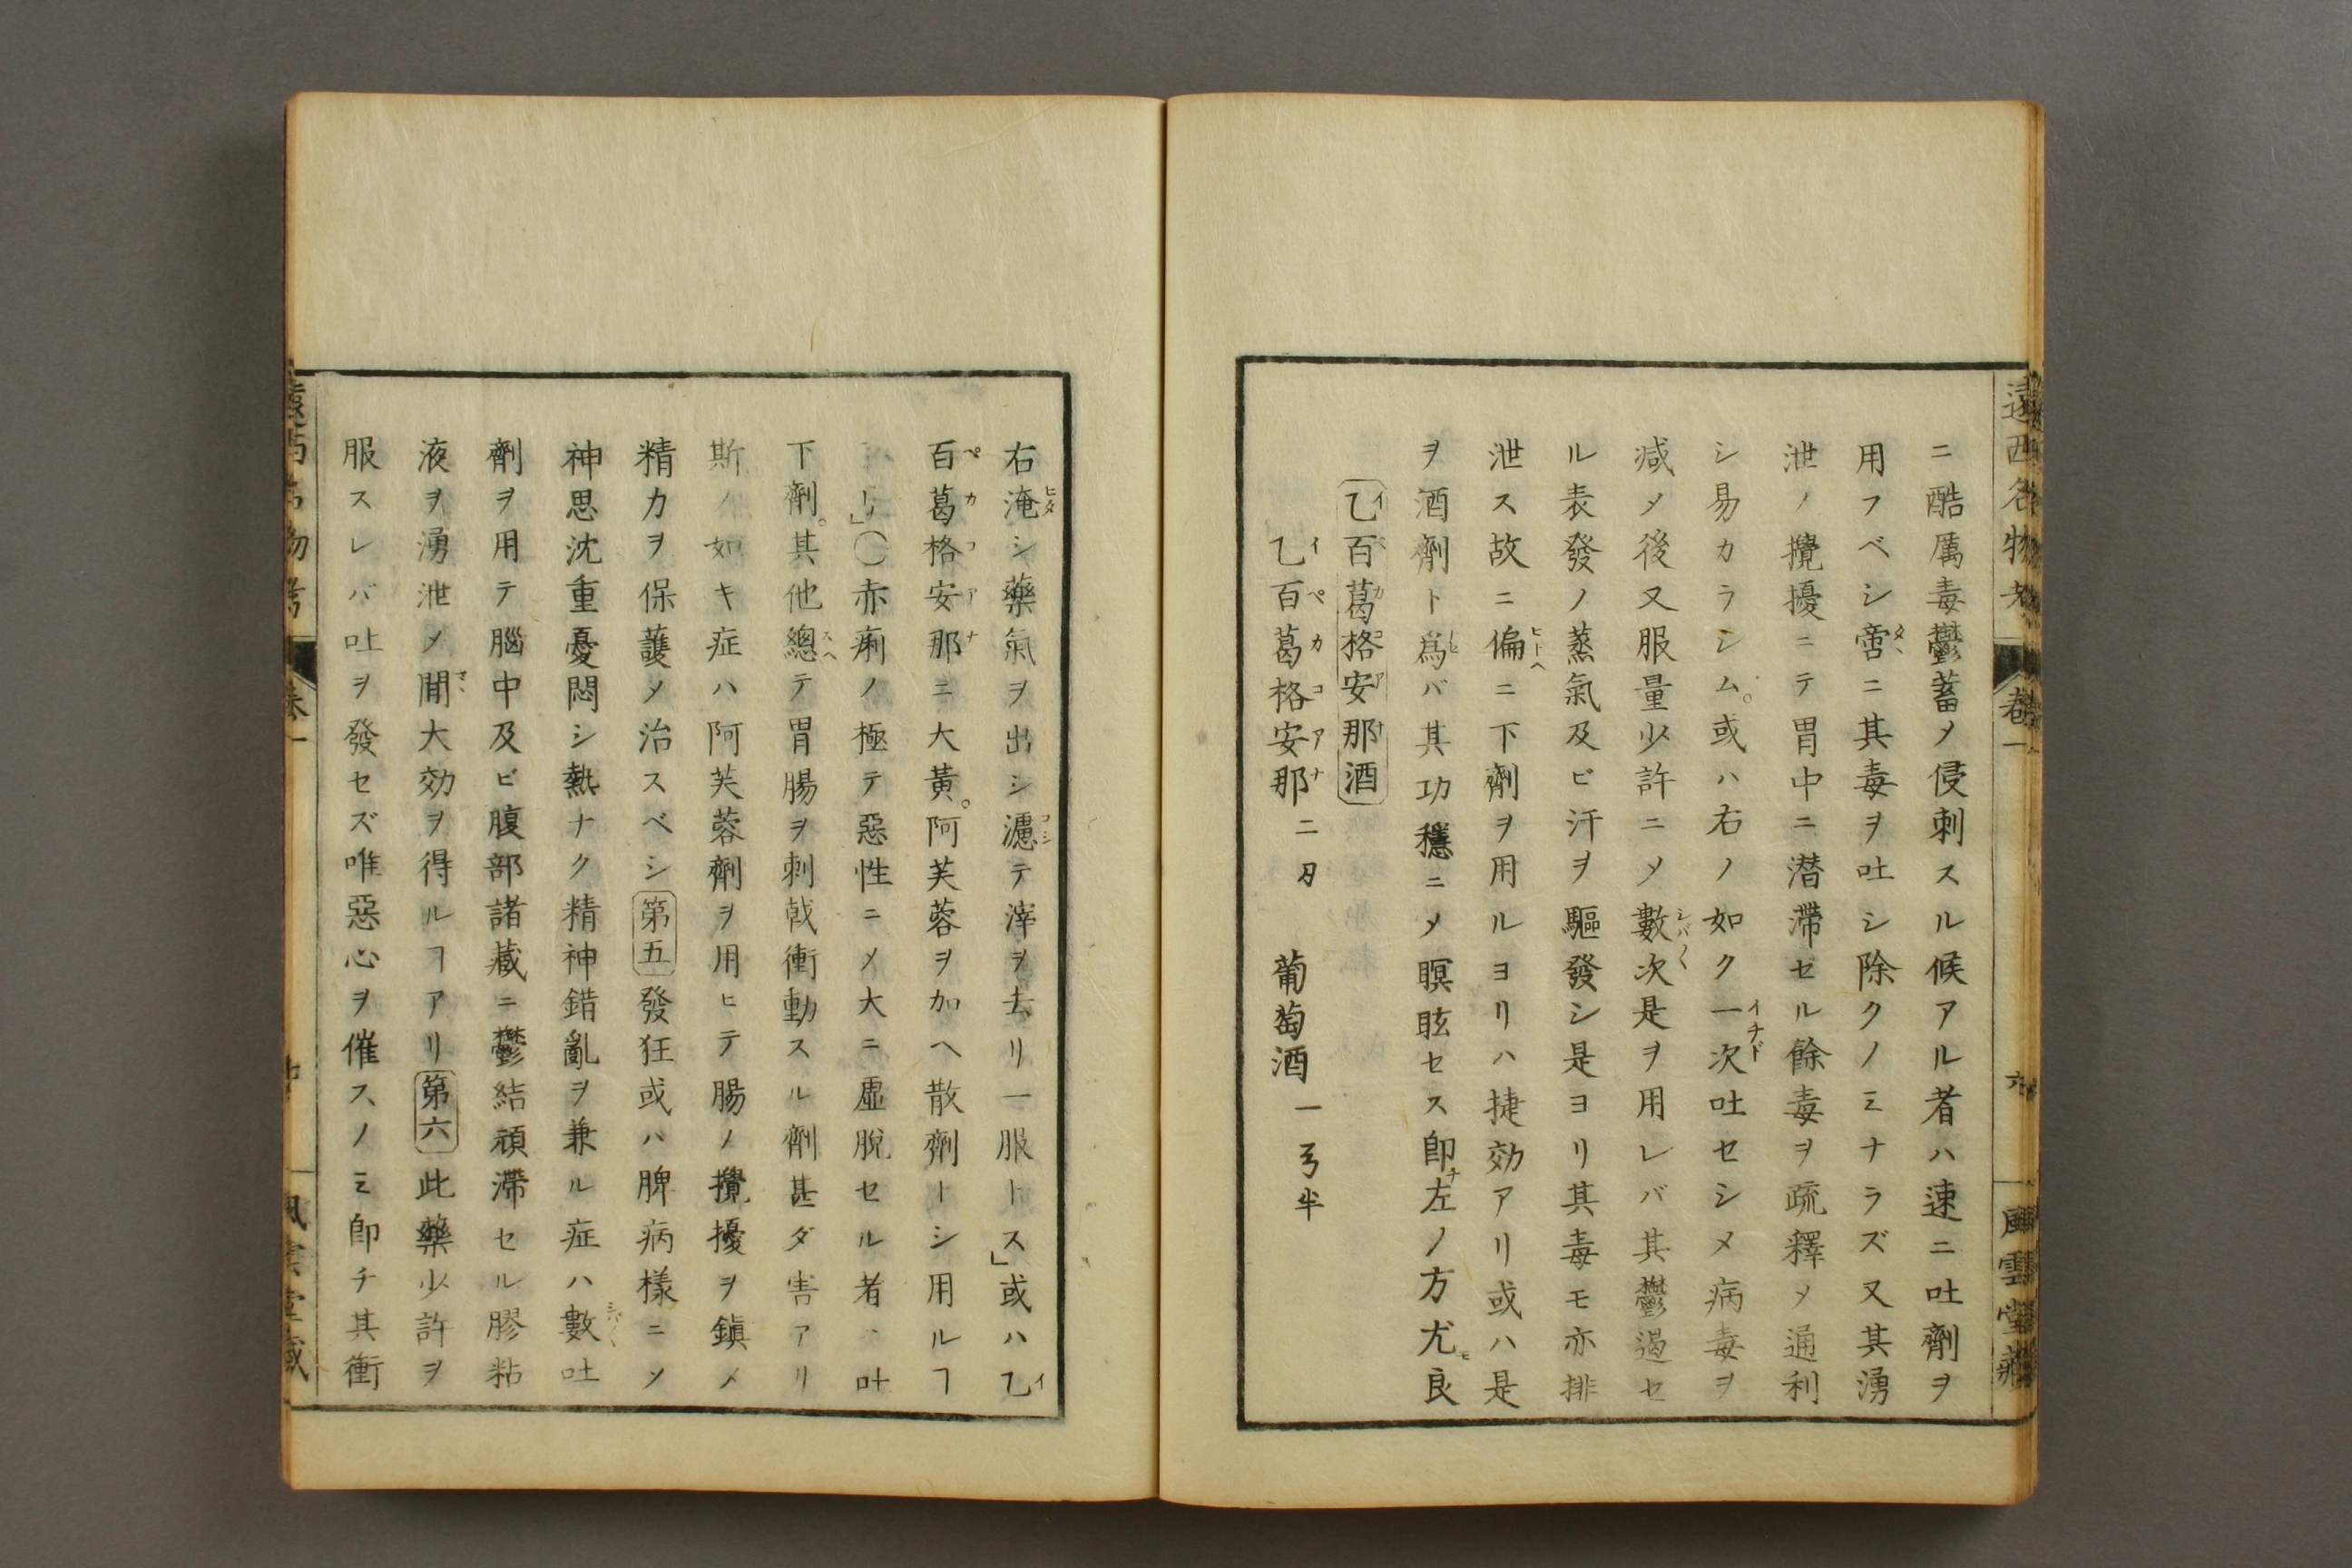 遠西名物考 卷一 六 風雲堂藏
ニ酷厲毒鬱蓄メ侵刺スル候アル者ハ速ニ吐劑ヲ
用フベシ啻ニ其毒ヲ吐シ除クノミナラズ又其湧
泄ノ攪擾ニテ胃中ニ潜滯セル餘毒ヲ疏釋メ通利
シ易カラシム。或ハ右ノ如ク一次吐セシメ病毒ヲ
减メ後又服量少許ニメ數次是ヲ用レバ其鬱遏セ
ル表發ノ蒸氣及ビ汗ヲ驅發シ是ヨリ其毒モ亦排
泄ス故ニ偏ニ下劑ヲ用ルヨリハ捷効アリ或ハ是
ヲ酒劑ト爲バ其功穩ニメ瞑眩セス卽左ノ方尤良
乙百葛格安那酒
乙百葛格安那二刄 葡萄酒一弓半
右淹シ藥氣ヲ出シ濾テ滓ヲ去リ一服トス」或ハ乙
百葛格安那ニ大黃。阿芙蓉ヲ加ヘ散劑トシ用ルヿ
リ」〇赤痢ノ極テ惡性ニメ大ニ虛脫セル者ハ吐
下劑。其他總テ胃腸ヲ刺戟衝動スル劑甚ダ害アリ
斯ノ如キ症ハ阿芙蓉劑ヲ用ヒテ腸ノ攪擾ヲ鎭メ
精力ヲ保護メ治スベシ第五發狂或ハ脾病樣ニメ
神思沈重憂悶シ熱ナク精神錯亂ヲ兼ル症ハ數吐
劑ヲ用テ腦中及ビ腹部諸藏ニ鬱結頑滯セル膠粘
液ヲ湧泄メ間大効ヲ得ルヿアリ第六此藥少許ヲ
服スレバ吐ヲ發セズ唯惡心ヲ催スノミ卽チ其衝
遠西名物考 卷一 風雲堂藏